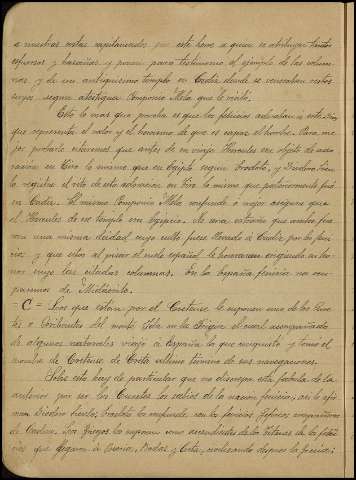 a nuestras costas capitaneados por este heroe a quien se atribuyen tantos
esfuerzos y hazañas y ponen para testimonio el ejemplo de las colum-
nas y de un antiquisimo templo en Cadiz donde se veneraban restos
suyos segun atestigua Pomponio Mela que le visitó.
Esto lo mas que prueba es que los fenicios adoraban a este Dios
que representa el valor y el heroismo de que es capaz el hombre. Para me-
jor probarlo notaremos que antes de su viaje Hercules era objeto de ado-
racion en Tiro lo mismo que en Egipto segun Erodoto, y Diodoro Siculo
registra el rito de esta adoracion en Tiro lo mismo que posteriormente fué
en Cadiz. El mismo Pomponio Mela confunde ó mejor asegura que
el Hercules de ese templo era Egipcio. Al caso, estamos que ambos fue-
ron una misma deidad cuyo culto fuese llevado á Cadiz por los feni-
cios y que estos al pisar el suelo español le honraran erigiendo en ho-
nor suyo las citadas columnas. En la España fenicia no ocu-
paremos de Midacrito.
C = Los que estan por el Cretense le suponen uno de los Cure-
tes o Coribantes del monte Ida en la
de algunos naturales viajó a España la que conquistó y tomó el
nombre de Cretense de Creta ultimo término de sus navegaciones.
Sobre esto hay de particular que no discrepa esta fabula de la
anterior por ser los Curetes los sabios de la nacion fenicia; así lo afir-
man Diodoro Siculo, Erodoto los confunde con los fenicios
de Cadmo. Los Griegos los suponen como ascendientes de los Titanes de los feni-
cios que llegaron á Beocia, Rodas y Creta,